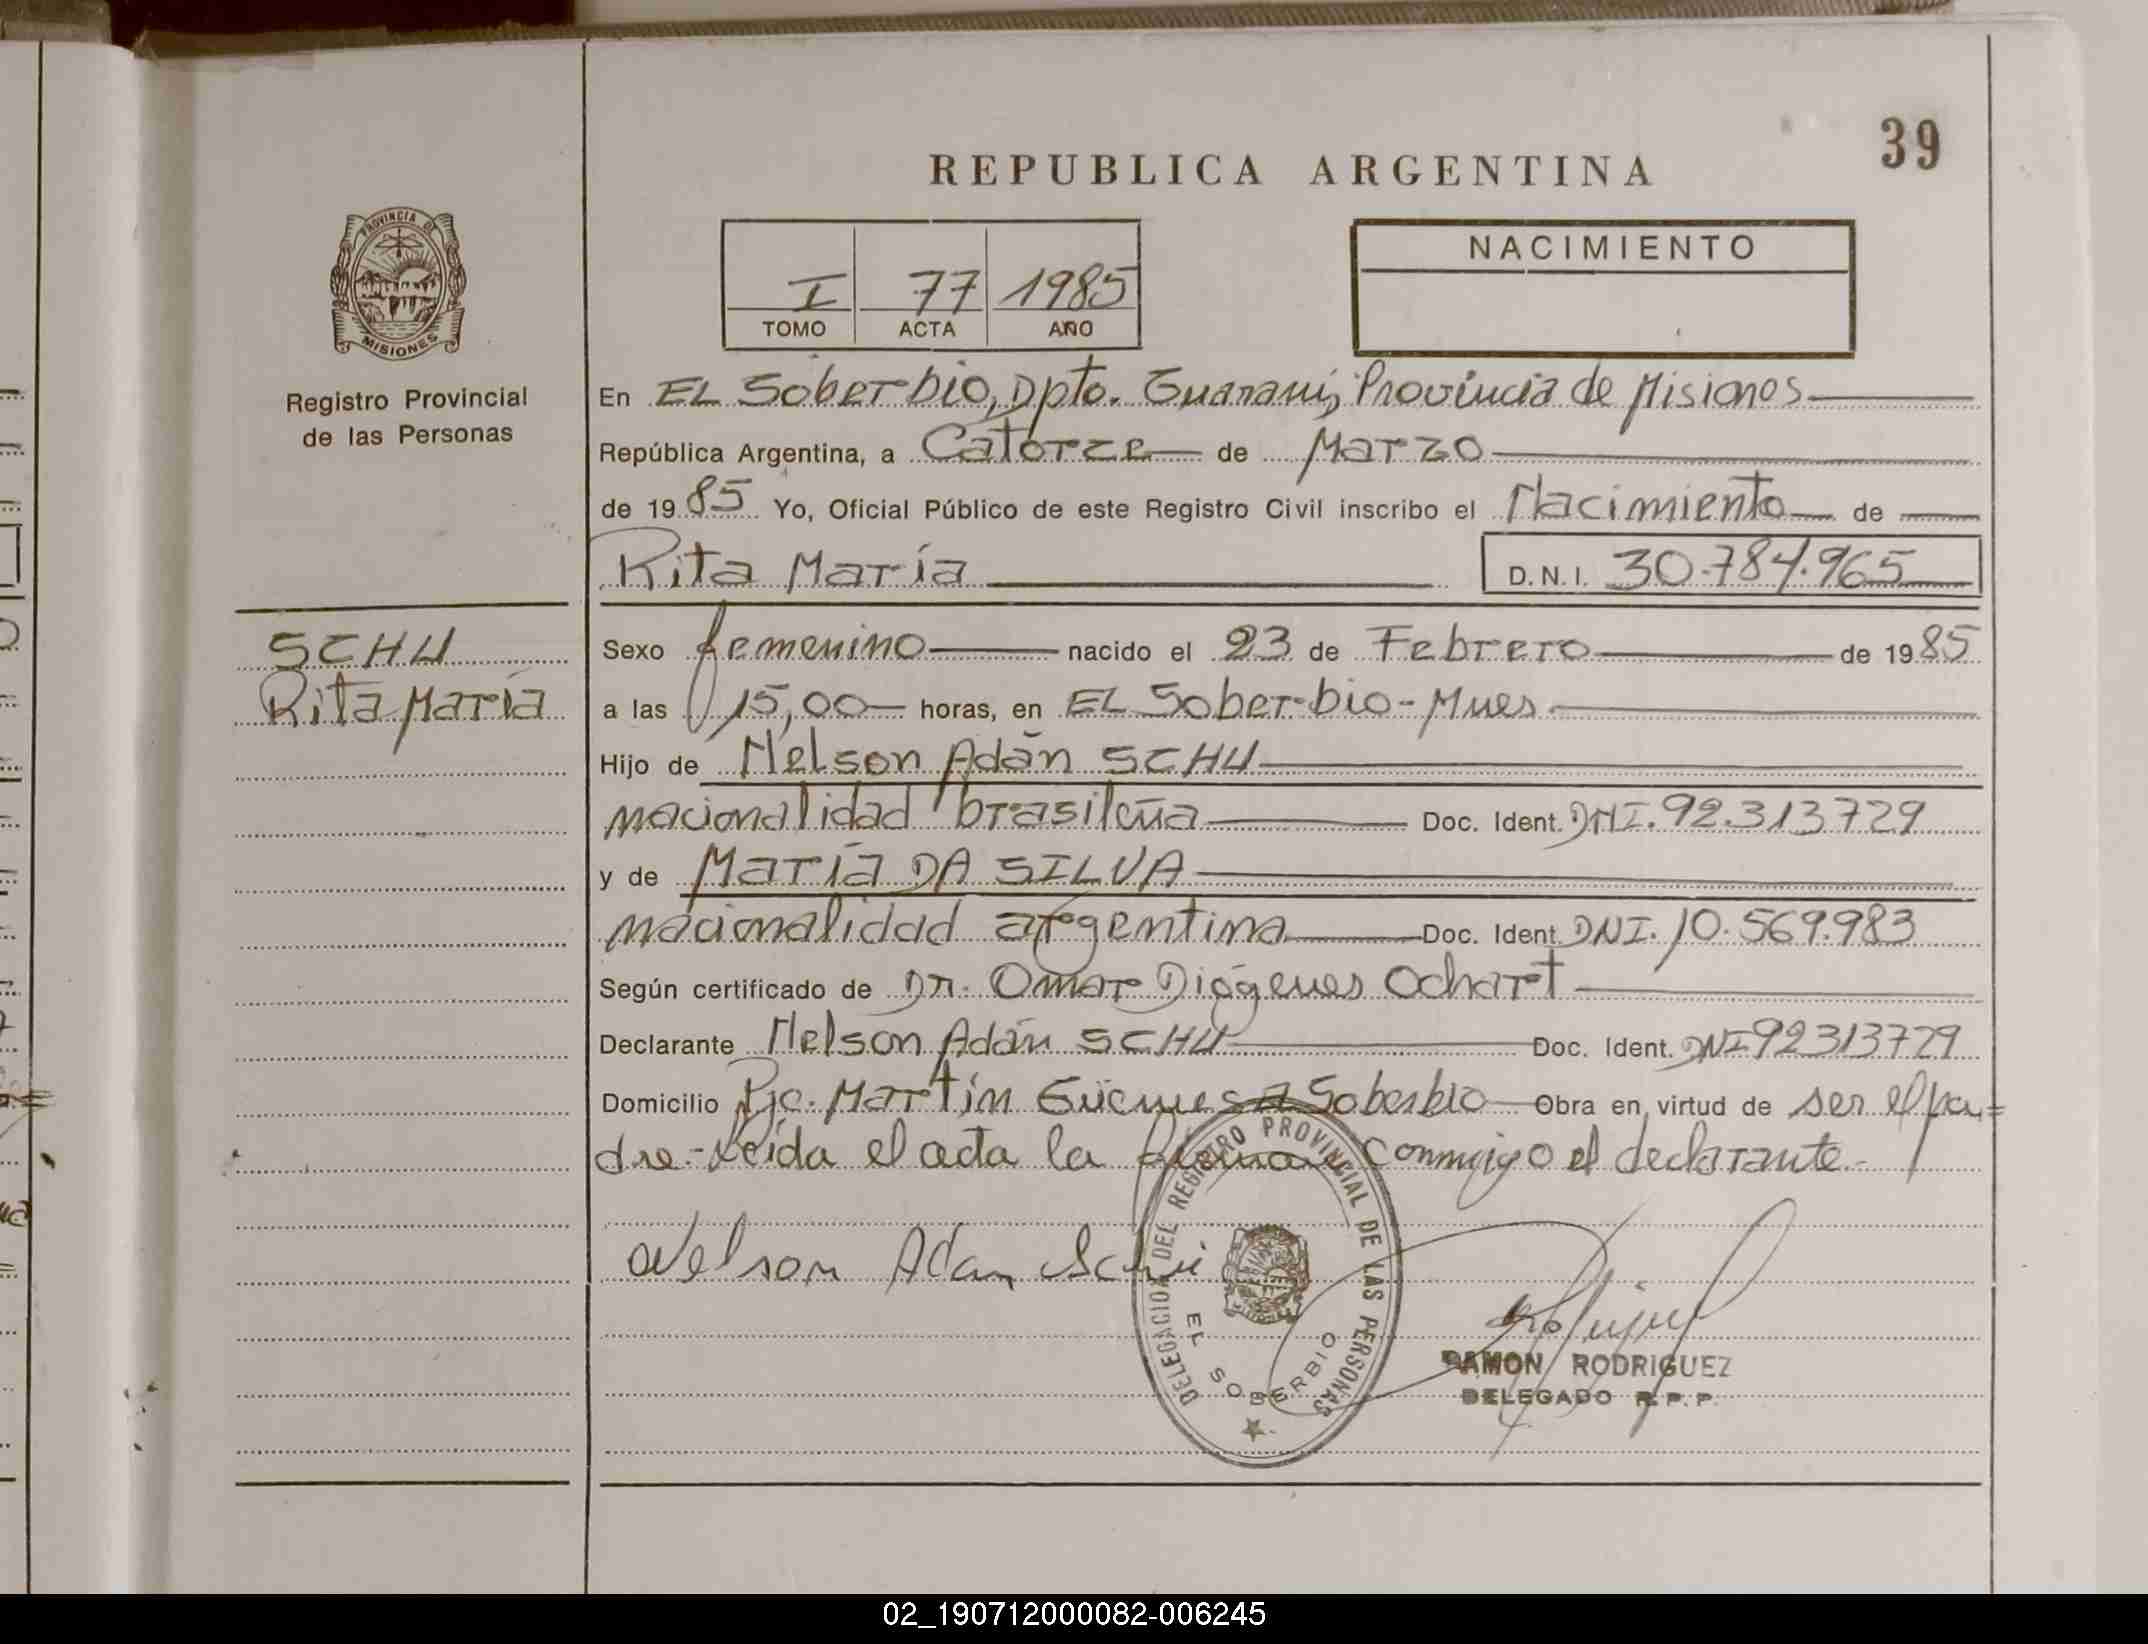 39
REPUBLICA ARGENTINA
PROVINCIA DE
MISIONES
Registro Provincial
de las Personas
I 77 1985
TOMO ACTA AÑO
NACIMIENTO
En EL Soberbio, Dpto. Guaraní, Provincia de Misiones
República Argentina, a Catorce de Marzo
de 1985 Yo, Oficial Público de este Registro Civil inscribo el Nacimiento de
Rita María D.N.I. 30.784.965
SCHU
Rita María
Sexo femenino nacido el 23 de Febrero de 1985
a las 15,00 horas, en EL Soberbio - Mnes
Hijo de Nelson Adán SCHU
nacionalidad brasileña Doc. Ident. DNI. 92.313729
y de María DA SILVA
nacionalidad argentina Doc. Ident. DNI. 10.569.983
Según certificado de Dr. Omar Diógenes Ochart
Declarante Nelson Adán SCHU Doc. Ident. DNI 92313729
Domicilio Pje. Martín Güemes Soberbio Obra en virtud de ser el pa=
dre.- Leída el acta la firma conmigo el declarante.-
Nelson Adan Schu
DELEGACION DEL REGISTRO PROVINCIAL DE LAS PERSONAS
EL SOBERBIO
RAMON RODRIGUEZ
DELEGADO R.P.P.
02_190712000082-006245